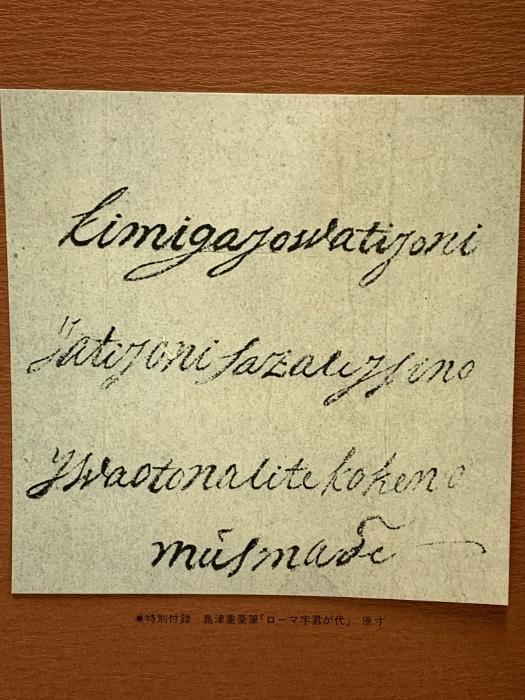 kimigayowatiyoni
yatiyoni sazaleyſino
ywaotonalite kokeno
músmade
●特別付録 島津重豪筆「ローマ字君が代」 原寸